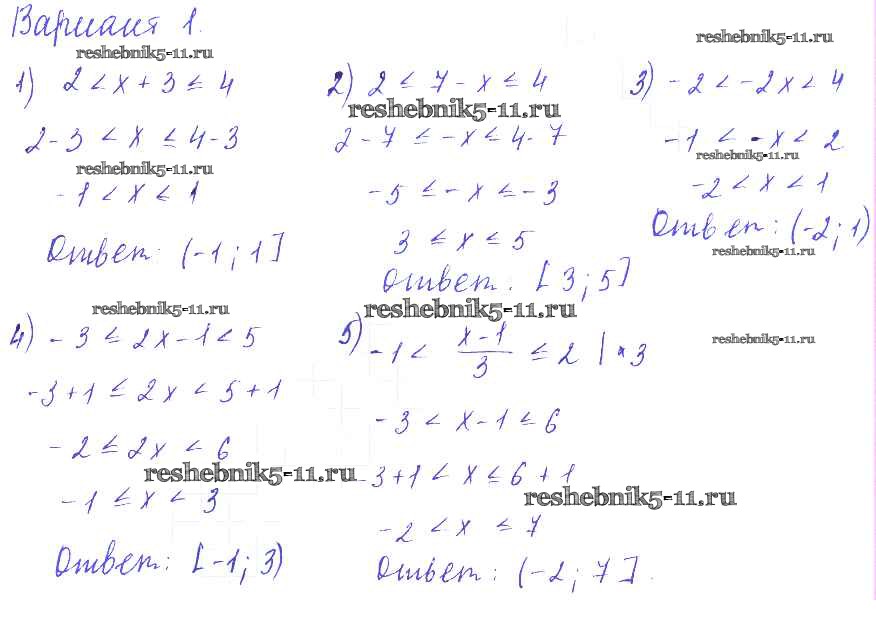 Вариант 1.
reshebnik5-11.ru
reshebnik5-11.ru
1) 2 < x + 3 ≤ 4
2 - 3 < x ≤ 4 - 3
reshebnik5-11.ru
-1 < x ≤ 1
Ответ: (-1; 1]
2) 2 ≤ 7 - x ≤ 4
reshebnik5-11.ru
2 - 7 ≤ -x ≤ 4 - 7
-5 ≤ -x ≤ -3
3 ≤ x ≤ 5
Ответ: [3; 5]
3) -2 < -2x < 4
-1 < -x < 2
reshebnik5-11.ru
-2 < x < 1
Ответ: (-2; 1)
reshebnik5-11.ru
reshebnik5-11.ru
4) -3 ≤ 2x - 1 < 5
-3 + 1 ≤ 2x < 5 + 1
-2 ≤ 2x < 6
reshebnik5-11.ru
-1 ≤ x < 3
Ответ: [-1; 3)
reshebnik5-11.ru
reshebnik5-11.ru
5) -1 < (x - 1)/3 ≤ 2 | * 3
-3 < x - 1 ≤ 6
-3 + 1 < x ≤ 6 + 1
reshebnik5-11.ru
-2 < x ≤ 7
Ответ: (-2; 7].